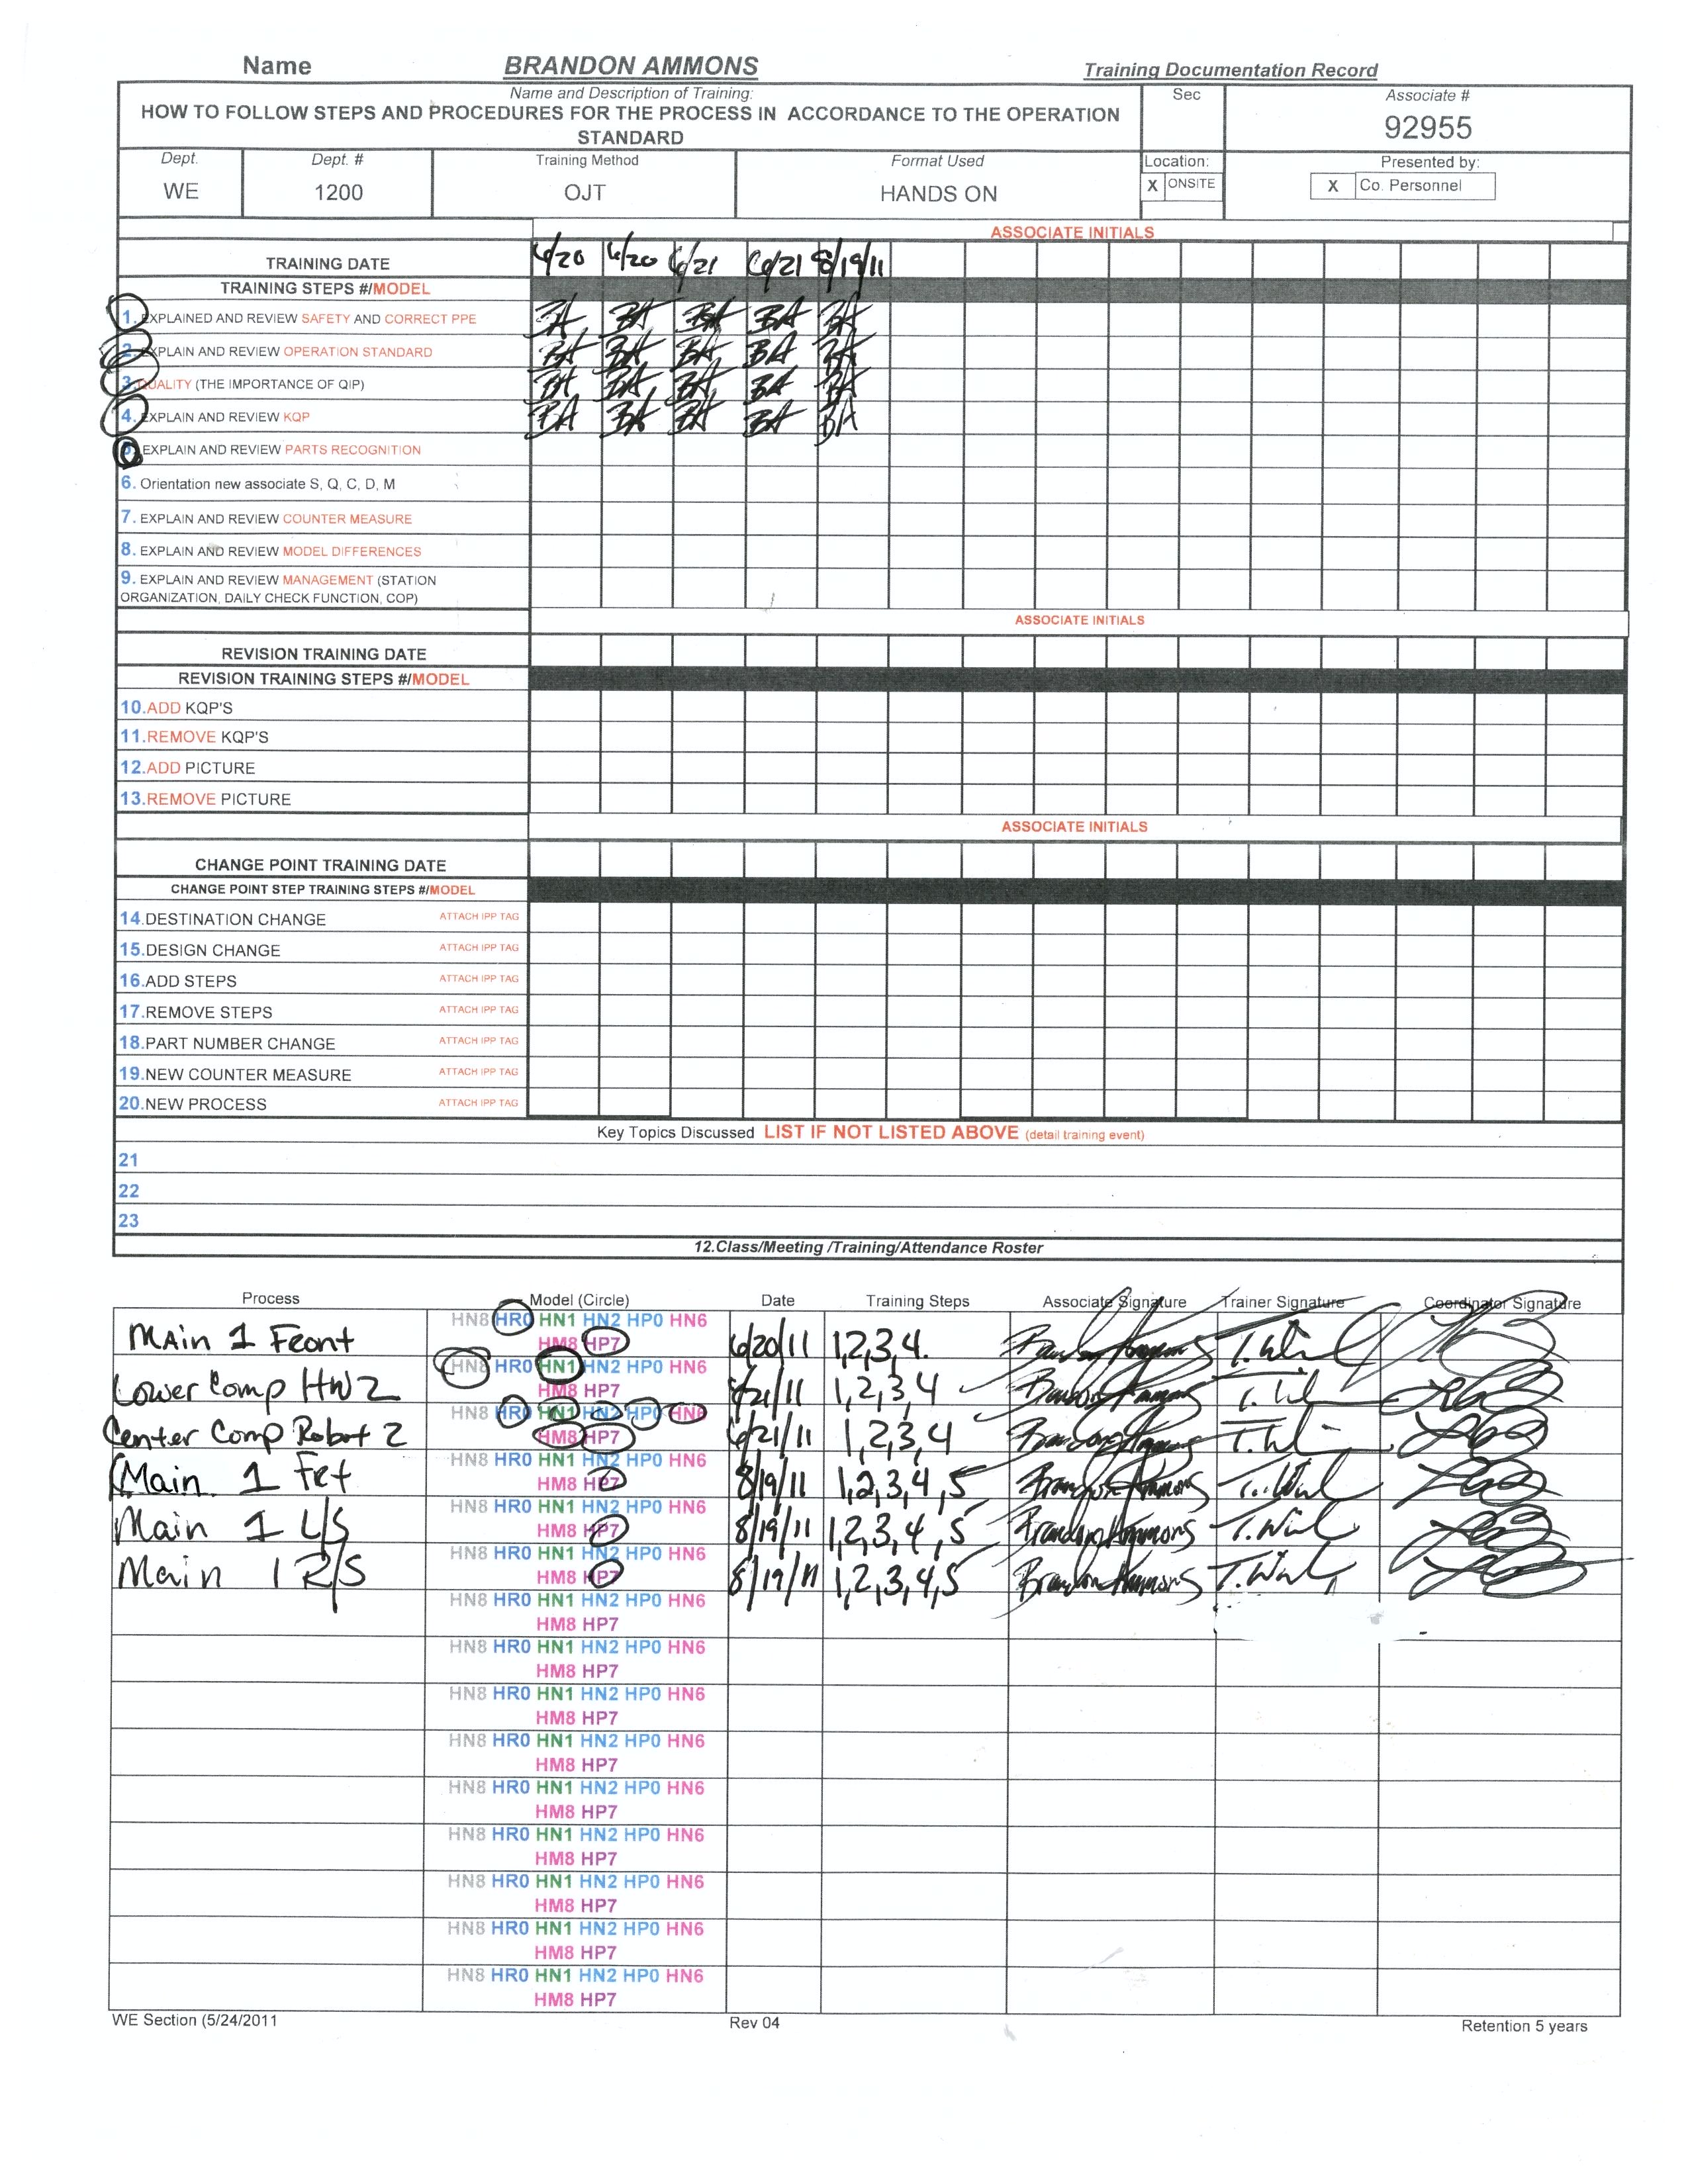 Name BRANDON AMMONS Training Documentation Record
Name and Description of Training: Sec Associate #
HOW TO FOLLOW STEPS AND PROCEDURES FOR THE PROCESS IN ACCORDANCE TO THE OPERATION
STANDARD
92955
Dept. Dept. # Training Method Format Used Location: Presented by:
WE 1200 OJT HANDS ON X ONSITE X Co. Personnel
ASSOCIATE INITIALS
TRAINING DATE 6/20 6/20 6/21 6/21 8/19/11
TRAINING STEPS #/MODEL
1. EXPLAINED AND REVIEW SAFETY AND CORRECT PPE BA BA BA BA BA
2. EXPLAIN AND REVIEW OPERATION STANDARD BA BA BA BA BA
3. QUALITY (THE IMPORTANCE OF QIP) BA BA BA BA BA
4. EXPLAIN AND REVIEW KQP BA BA BA BA BA
5. EXPLAIN AND REVIEW PARTS RECOGNITION
6. Orientation new associate S, Q, C, D, M
7. EXPLAIN AND REVIEW COUNTER MEASURE
8. EXPLAIN AND REVIEW MODEL DIFFERENCES
9. EXPLAIN AND REVIEW MANAGEMENT (STATION
ORGANIZATION, DAILY CHECK FUNCTION, COP)
ASSOCIATE INITIALS
REVISION TRAINING DATE
REVISION TRAINING STEPS #/MODEL
10.ADD KQP'S
11.REMOVE KQP'S
12.ADD PICTURE
13.REMOVE PICTURE
ASSOCIATE INITIALS
CHANGE POINT TRAINING DATE
CHANGE POINT STEP TRAINING STEPS #/MODEL
14.DESTINATION CHANGE ATTACH IPP TAG
15.DESIGN CHANGE ATTACH IPP TAG
16.ADD STEPS ATTACH IPP TAG
17.REMOVE STEPS ATTACH IPP TAG
18.PART NUMBER CHANGE ATTACH IPP TAG
19.NEW COUNTER MEASURE ATTACH IPP TAG
20.NEW PROCESS ATTACH IPP TAG
Key Topics Discussed LIST IF NOT LISTED ABOVE (detail training event)
21
22
23
12.Class/Meeting /Training/Attendance Roster
Process Model (Circle) Date Training Steps Associate Signature Trainer Signature Coordinator Signature
HN8 HR0 HN1 HN2 HP0 HN6
Main 1 Front HM8 HP7 6/20/11 1,2,3,4. Brandon Ammons
HN8 HR0 HN1 HN2 HP0 HN6
Lower Comp HW2 HM8 HP7 6/21/11 1,2,3,4 Brandon Ammons
HN8 HR0 HN1 HN2 HP0 HN6
Center Comp Robot 2 HM8 HP7 6/21/11 1,2,3,4 Brandon Ammons
HN8 HR0 HN1 HN2 HP0 HN6
Main 1 Frt HM8 HP7 8/19/11 1,2,3,4,5 Brandon Ammons
HN8 HR0 HN1 HN2 HP0 HN6
Main 1 L/S HM8 HP7 8/19/11 1,2,3,4,5 Brandon Ammons
HN8 HR0 HN1 HN2 HP0 HN6
Main 1 R/S HM8 HP7 8/19/11 1,2,3,4,5 Brandon Ammons
HN8 HR0 HN1 HN2 HP0 HN6
HM8 HP7
HN8 HR0 HN1 HN2 HP0 HN6
HM8 HP7
HN8 HR0 HN1 HN2 HP0 HN6
HM8 HP7
HN8 HR0 HN1 HN2 HP0 HN6
HM8 HP7
HN8 HR0 HN1 HN2 HP0 HN6
HM8 HP7
HN8 HR0 HN1 HN2 HP0 HN6
HM8 HP7
HN8 HR0 HN1 HN2 HP0 HN6
HM8 HP7
HN8 HR0 HN1 HN2 HP0 HN6
HM8 HP7
HN8 HR0 HN1 HN2 HP0 HN6
HM8 HP7
WE Section (5/24/2011 Rev 04 Retention 5 years